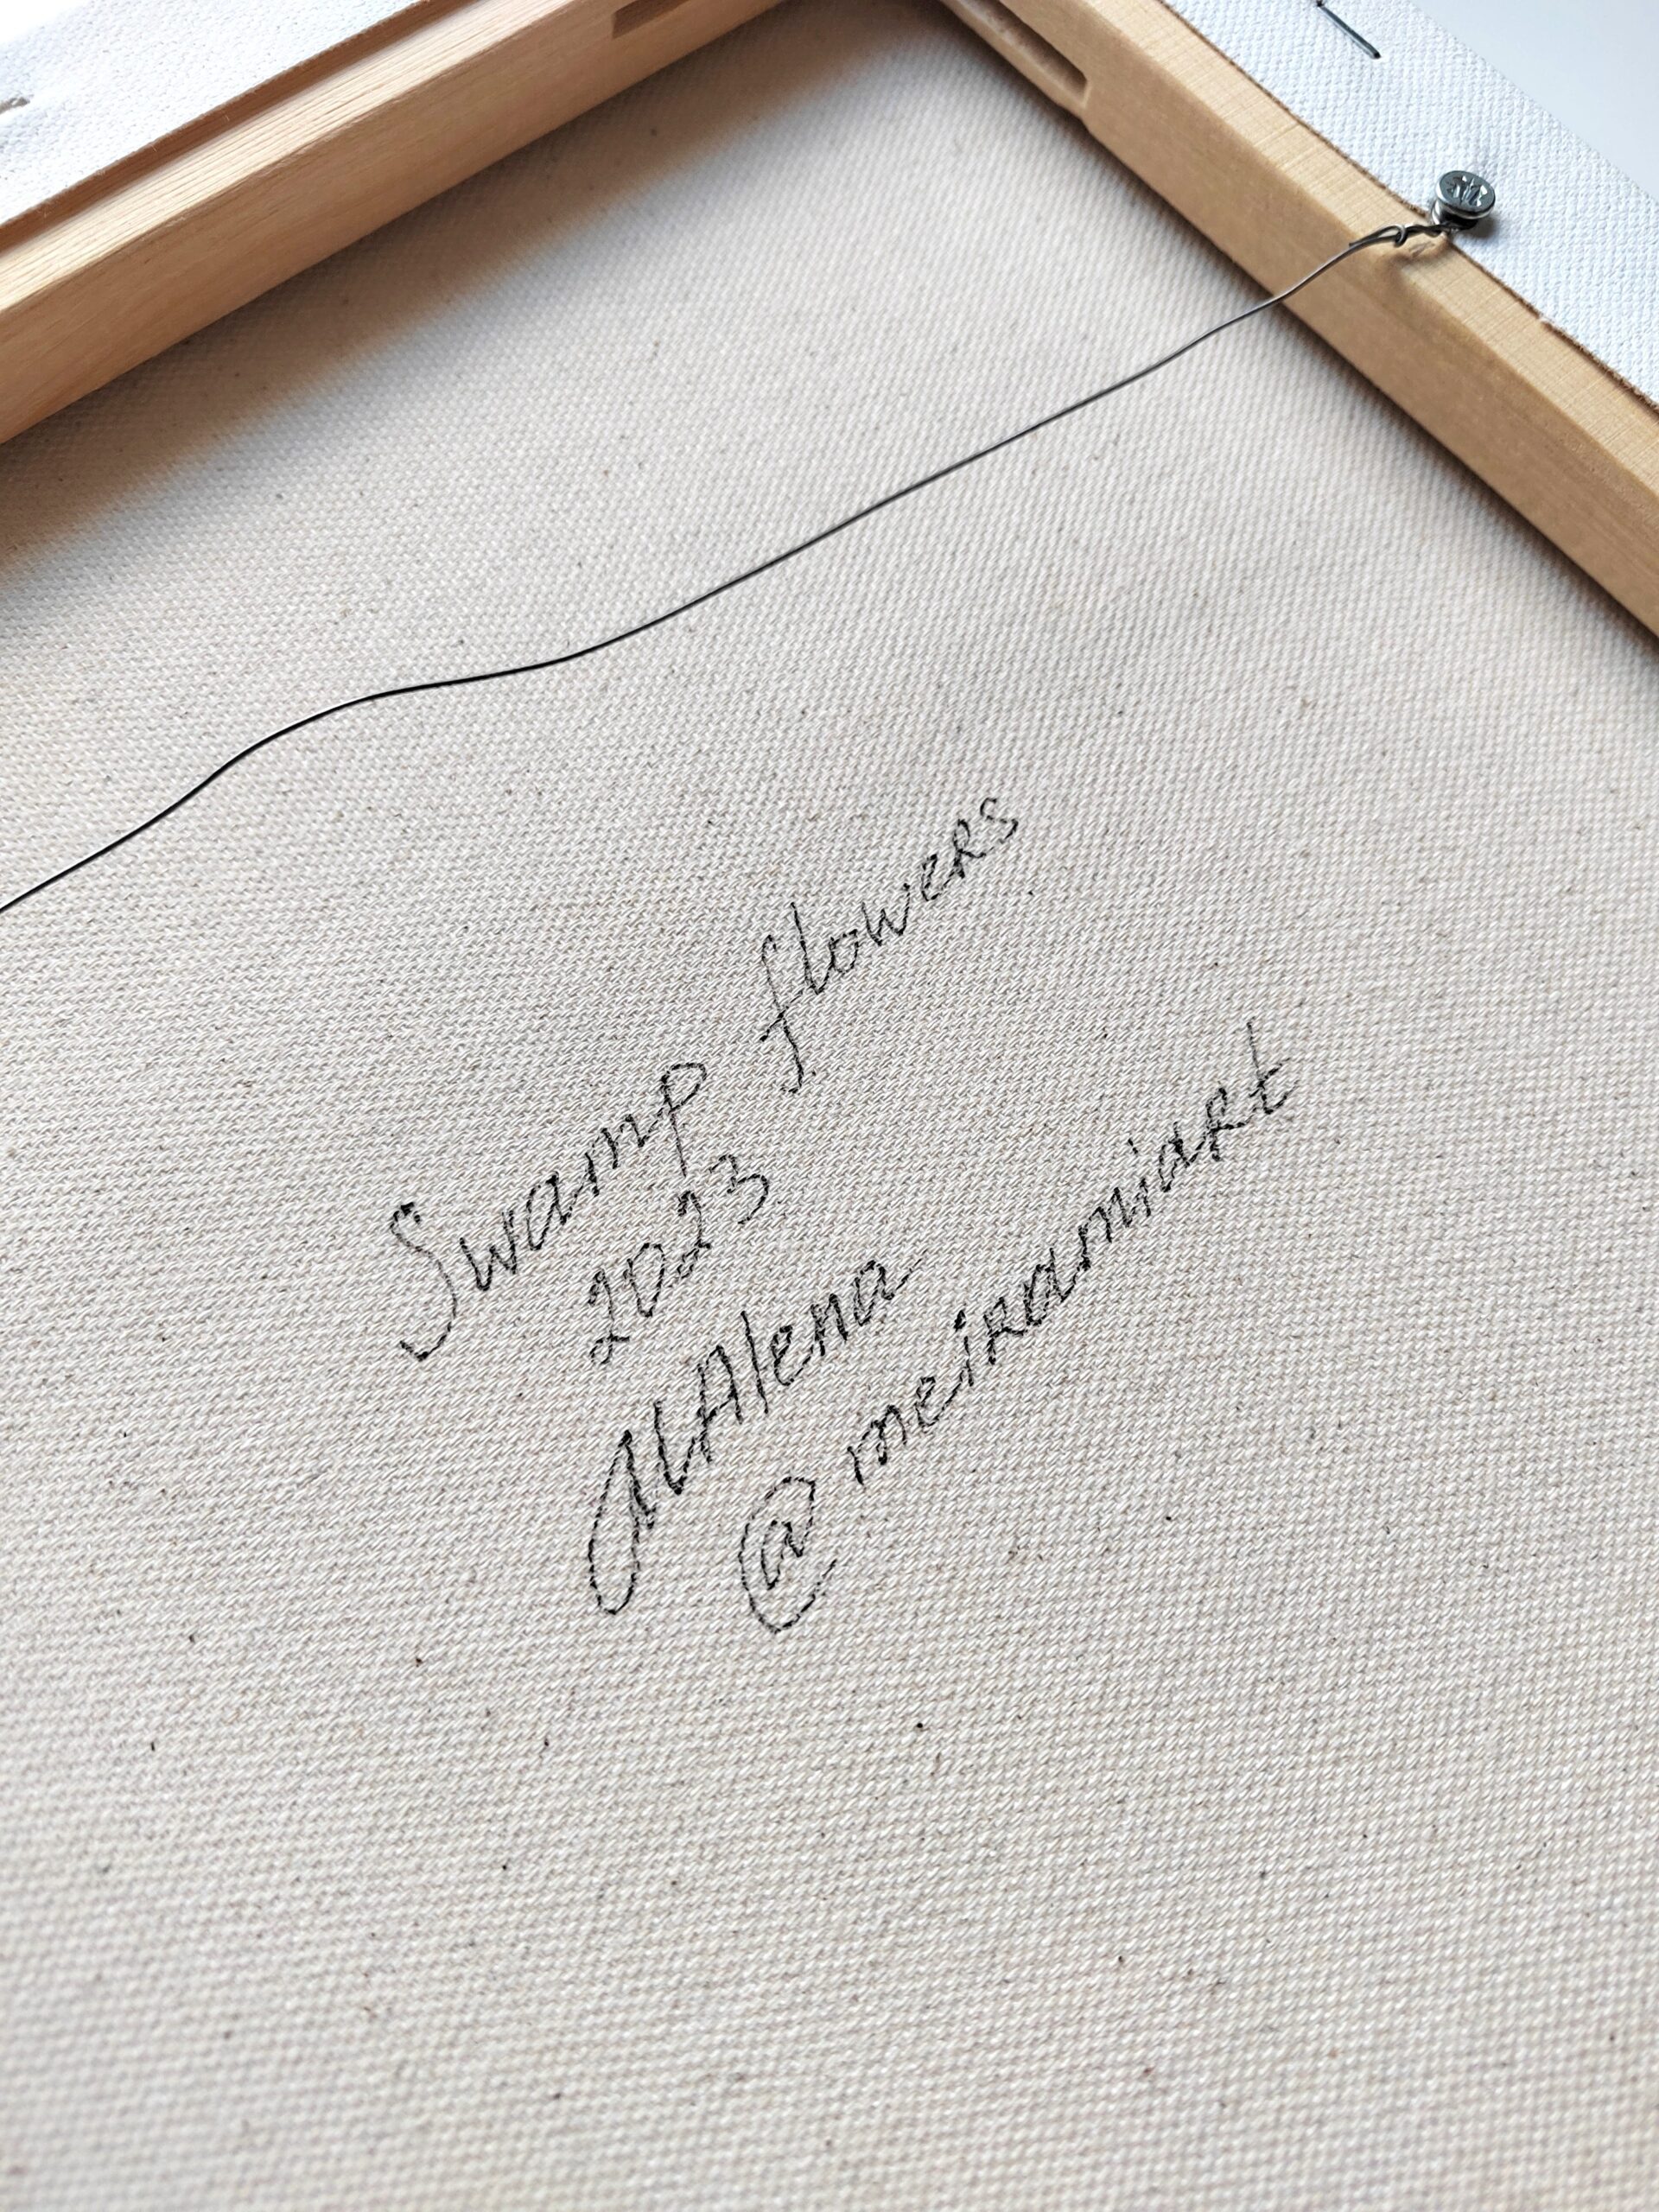 Swamp flowers
2023
MAlena
@meiramiart